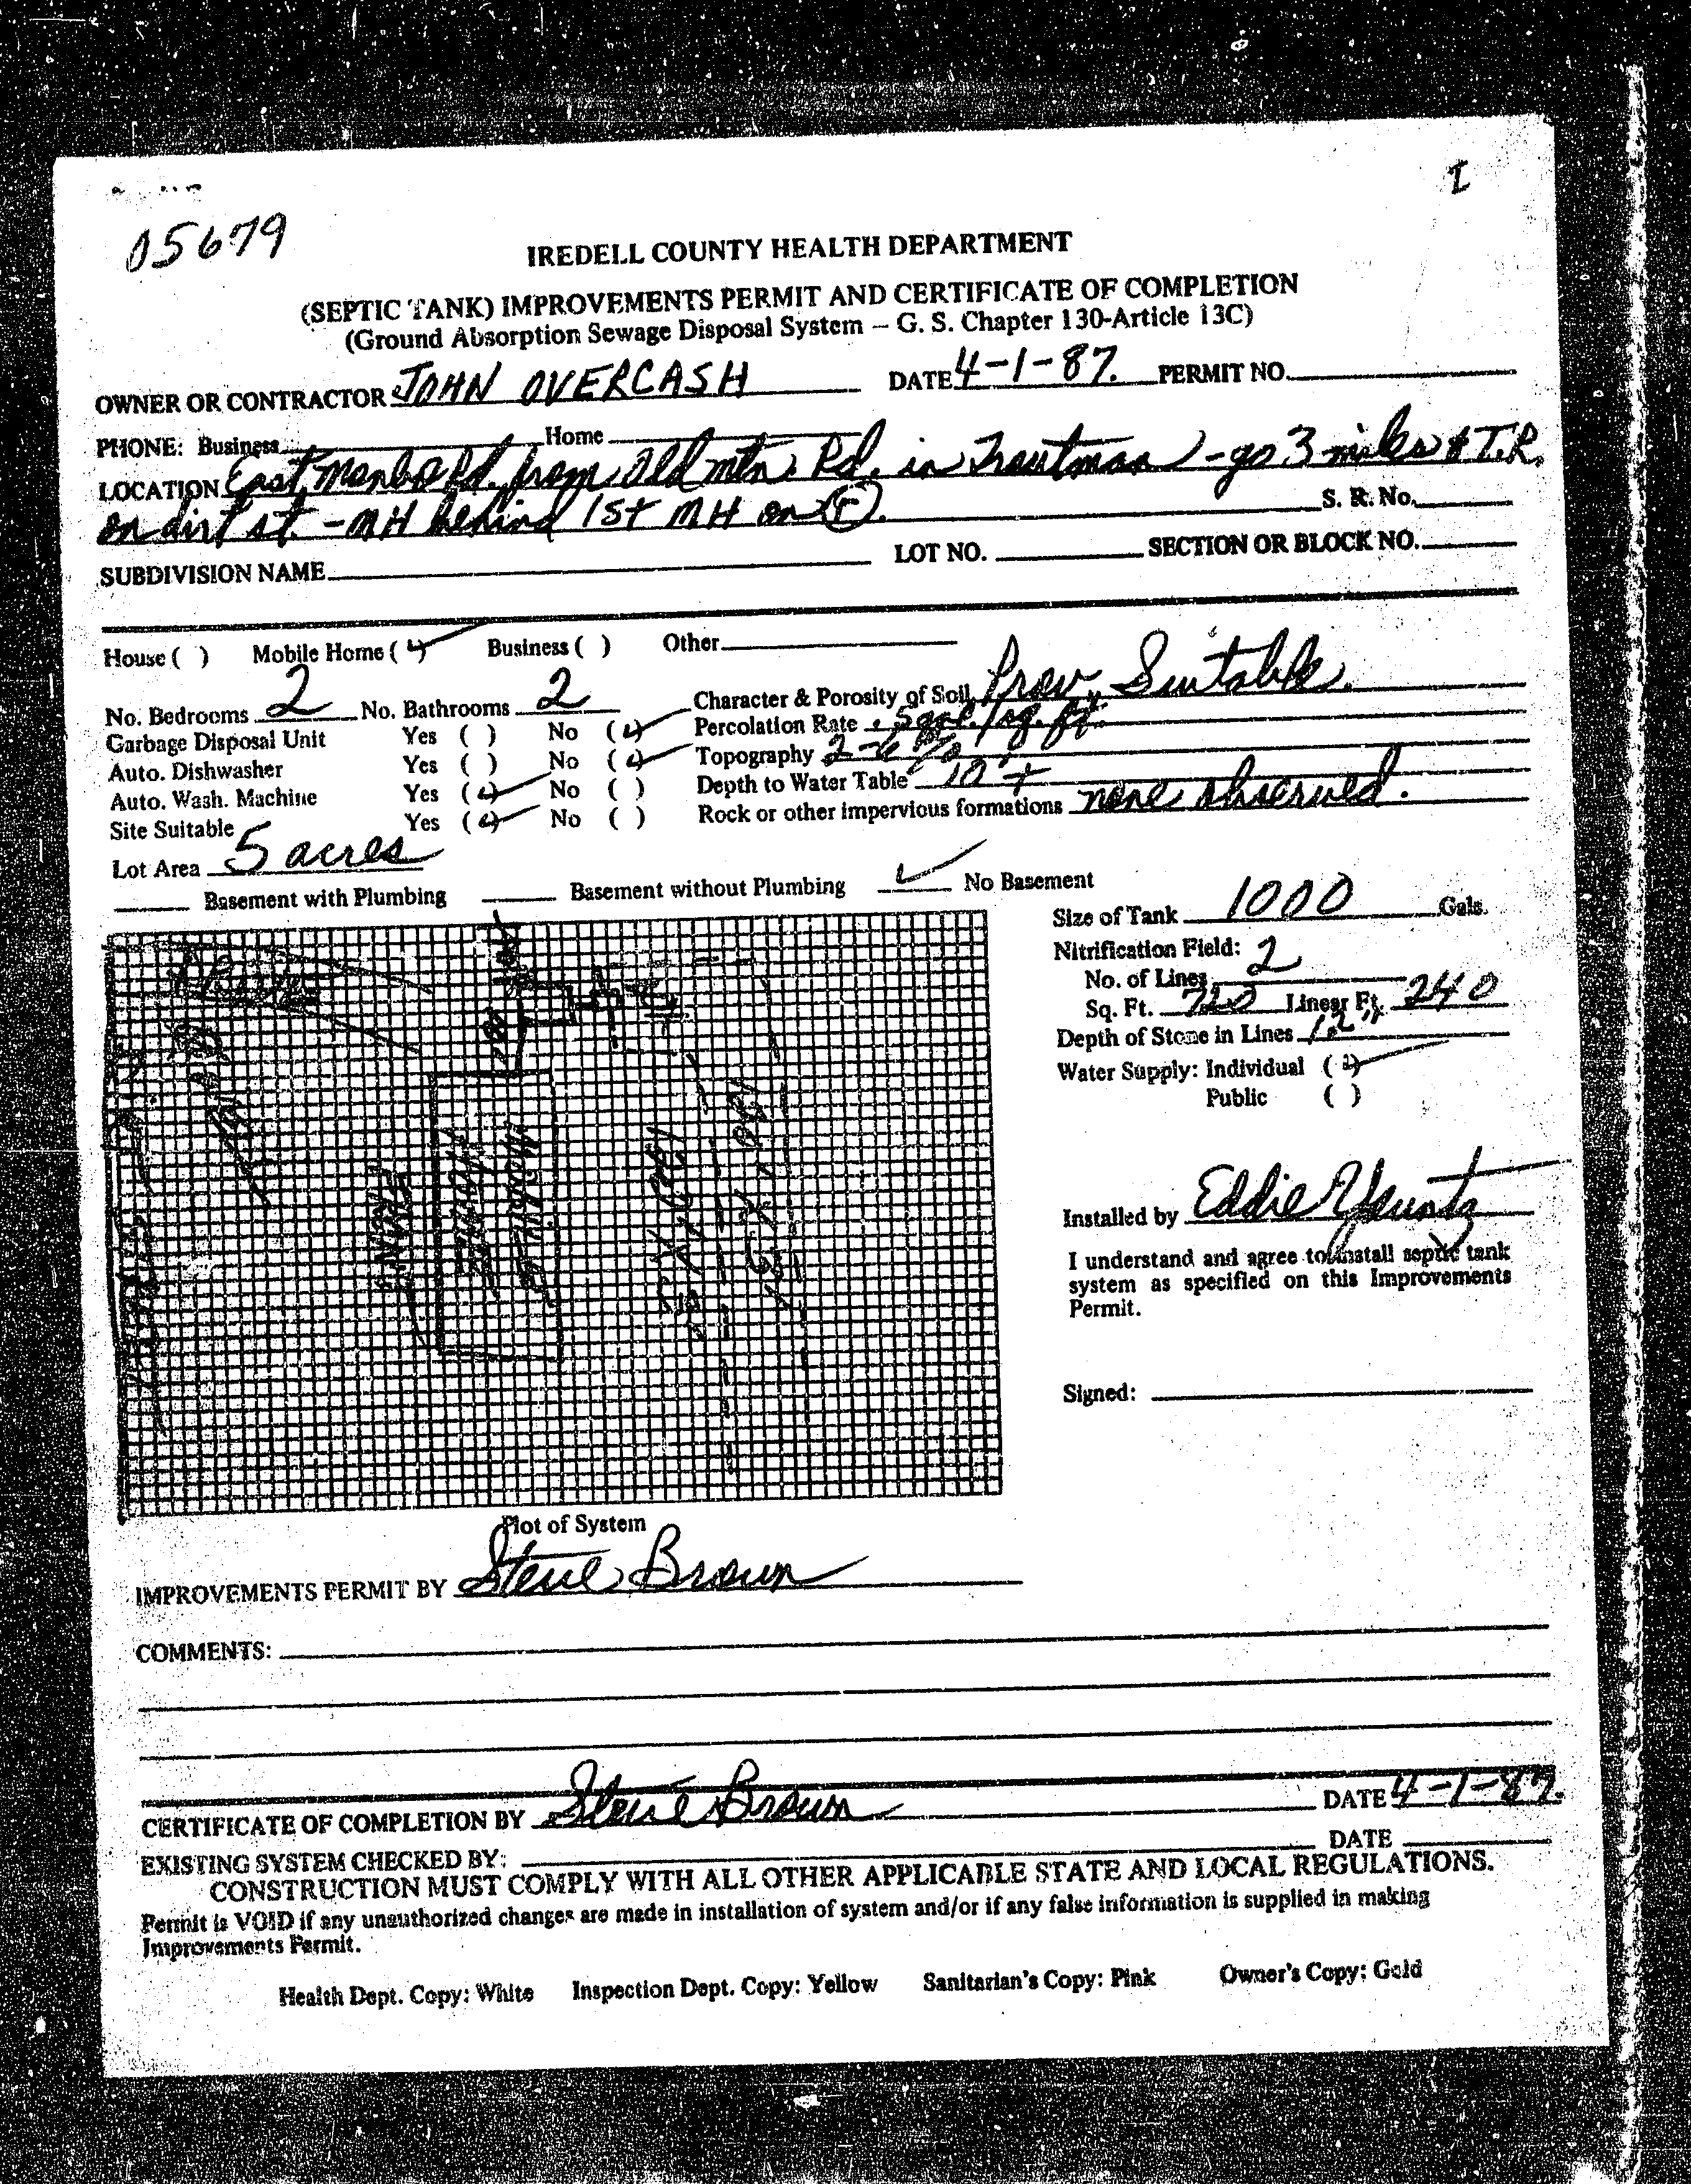 I
05679
IREDELL COUNTY HEALTH DEPARTMENT
(SEPTIC TANK) IMPROVEMENTS PERMIT AND CERTIFICATE OF COMPLETION
(Ground Absorption Sewage Disposal System – G. S. Chapter 130-Article 13C)
OWNER OR CONTRACTOR JOHN OVERCASH DATE 4-1-87. PERMIT NO.
PHONE: Business Home
LOCATION East Monbo Rd. from Old mtn. Rd. in Troutman - go 3 miles & T.R.
on dirt st. - MH behind 1st MH on (r). S. R. No.
SUBDIVISION NAME LOT NO. SECTION OR BLOCK NO.
House ( ) Mobile Home (✓) Business ( ) Other
No. Bedrooms 2 No. Bathrooms 2 Character & Porosity of Soil Prov. Suitable.
Garbage Disposal Unit Yes ( ) No (✓) Percolation Rate .5gal./sq. ft.
Auto. Dishwasher Yes ( ) No (✓) Topography 2-6%
Auto. Wash. Machine Yes (✓) No ( ) Depth to Water Table 10'+
Site Suitable Yes (✓) No ( ) Rock or other impervious formations none observed.
Lot Area 5 acres
Basement with Plumbing Basement without Plumbing ✓ No Basement
Size of Tank 1000 Gals.
Nitrification Field:
No. of Lines 2
Sq. Ft. 720 Linear Ft. 240
Depth of Stone in Lines 12"
Water Supply: Individual (✓)
Public ( )
Drive
Mobile
Home
FRONT
Installed by Eddie Yountz
I understand and agree to install septic tank
system as specified on this Improvements
Permit.
Signed:
Plot of System
IMPROVEMENTS PERMIT BY Steve Brown
COMMENTS:
CERTIFICATE OF COMPLETION BY Steve Brown DATE 4-1-87.
EXISTING SYSTEM CHECKED BY: DATE
CONSTRUCTION MUST COMPLY WITH ALL OTHER APPLICABLE STATE AND LOCAL REGULATIONS.
Permit is VOID if any unauthorized changes are made in installation of system and/or if any false information is supplied in making
Improvements Permit.
Health Dept. Copy: White Inspection Dept. Copy: Yellow Sanitarian's Copy: Pink Owner's Copy: Gold